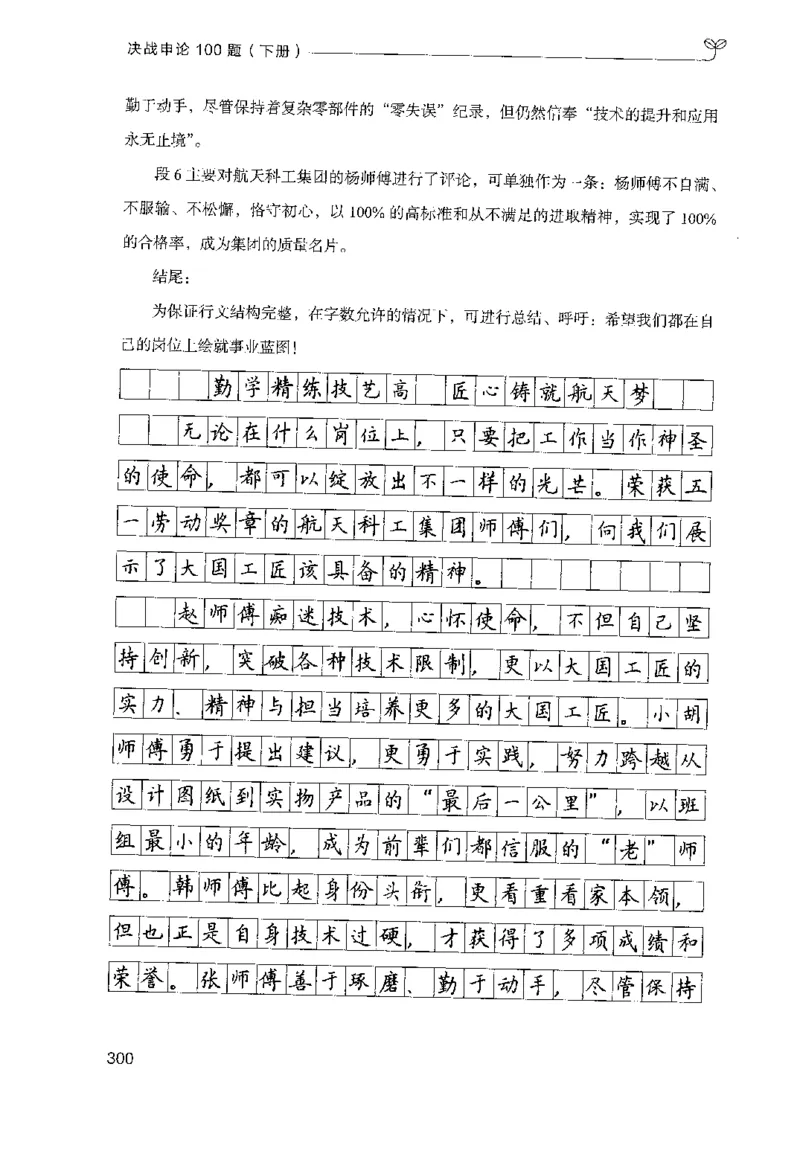 决战申论100题（下册）
勤于动手，尽管保持着复杂零部件的“零失误”纪录，但仍然信奉“技术的提升和应用
永无止境”。
段6主要对航天科工集团的杨师傅进行了评论，可单独作为一条：杨师傅不自满、
不服输、不松懈，恪守初心，以100%的高标准和从不满足的进取精神，实现了100%
的合格率，成为集团的质量名片。
结尾：
为保证行文结构完整，在字数允许的情况下，可进行总结、呼吁：希望我们都在自
己的岗位上绘就事业蓝图！
勤学精练技艺高 匠心铸就航天梦
无论在什么岗位上，只要把工作当作神圣
的使命，都可以绽放出不一样的光芒。荣获五
一劳动奖章的航天科工集团师傅们，向我们展
示了大国工匠该具备的精神。
赵师傅痴迷技术，心怀使命，不但自己坚
持创新，突破各种技术限制，更以大国工匠的
实力、精神与担当培养更多的大国工匠。小胡
师傅勇于提出建议，更勇于实践，努力跨越从
设计图纸到实物产品的“最后一公里”，以班
组最小的年龄，成为前辈们都信服的“老”师
傅。韩师傅比起身份头衔，更看重看家本领，
但也正是自身技术过硬，才获得了多项成绩和
荣誉。张师傅善于琢磨、勤于动手，尽管保持
300